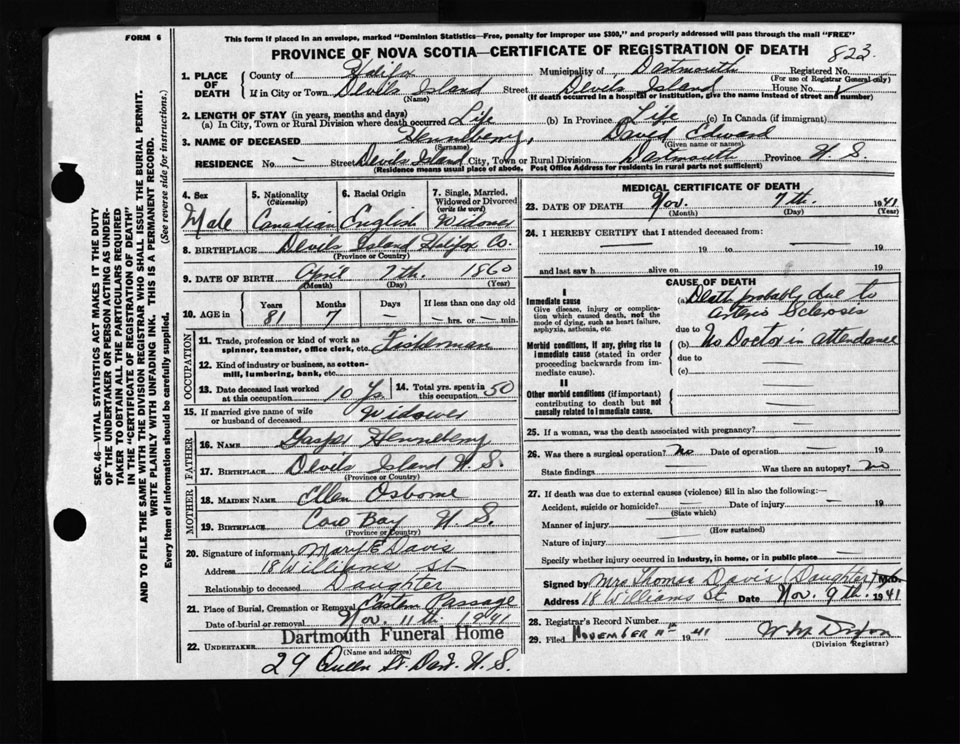 FORM 6
This form if placed in an envelope, marked "Dominion Statistics—Free, penalty for improper use $300," and properly addressed will pass through the mail "FREE"
PROVINCE OF NOVA SCOTIA—CERTIFICATE OF REGISTRATION OF DEATH
823
1. PLACE OF DEATH
County of Halifax Municipality of Dartmouth Registered No.
(For use of Registrar General only)
If in City or Town Devils Island (Name) Street Devils Island House No.
(If death occurred in a hospital or institution, give the name instead of street and number)
2. LENGTH OF STAY (in years, months and days)
(a) In City, Town or Rural Division where death occurred Life (b) In Province Life (c) In Canada (if immigrant)
3. NAME OF DECEASED Henneberry, David Edward
(Surname) (Given name or names)
RESIDENCE No. – Street Devils Island City, Town or Rural Division Dartmouth Province N. S.
(Residence means usual place of abode. Post Office Address for residents in rural parts not sufficient)
4. Sex
Male
5. Nationality (Citizenship)
Canadian
6. Racial Origin
English
7. Single, Married, Widowed or Divorced (write the word)
Widower
8. BIRTHPLACE Devils Island Halifax Co.
(Province or Country)
9. DATE OF BIRTH April 7th. 1860
(Month) (Day) (Year)
10. AGE in Years Months Days If less than one day old
81 7 – – hrs. or – min.
OCCUPATION
11. Trade, profession or kind of work as spinner, teamster, office clerk, etc. Fisherman
12. Kind of industry or business, as cotton-mill, lumbering, bank, etc.
13. Date deceased last worked at this occupation 10 Ys
14. Total yrs. spent in this occupation 50
15. If married give name of wife or husband of deceased Widower
FATHER
16. NAME Gasper Henneberry
17. BIRTHPLACE Devils Island N. S.
(Province or Country)
MOTHER
18. MAIDEN NAME Ellen Osborne
19. BIRTHPLACE Cow Bay N. S.
(Province or Country)
20. Signature of informant Mary E Davis
Address 18 Williams St
Relationship to deceased Daughter
21. Place of Burial, Cremation or Removal Eastern Passage
Date of burial or removal Nov. 11th. 1941
22. UNDERTAKER Dartmouth Funeral Home
(Name and address)
29 Queen St. Dart. N. S.
MEDICAL CERTIFICATE OF DEATH
23. DATE OF DEATH Nov. 7th. 1941
(Month) (Day) (Year)
24. I HEREBY CERTIFY that I attended deceased from:
19 to 19
and last saw h alive on 19
CAUSE OF DEATH
I
Immediate cause
Give disease, injury or complication which caused death, not the mode of dying, such as heart failure, asphyxia, asthenia, etc
(a) Death probably due to
Arterio Sclerosis
due to
Morbid conditions, if any, giving rise to immediate cause (stated in order proceeding backwards from immediate cause).
(b) No Doctor in attendance
due to
(c)
II
Other morbid conditions (if important) contributing to death but not causally related to immediate cause.
25. If a woman, was the death associated with pregnancy?
26. Was there a surgical operation? No Date of operation – 19
State findings Was there an autopsy? no
27. If death was due to external causes (violence) fill in also the following:—
Accident, suicide or homicide? Date of injury 19
(State which)
Manner of injury
(How sustained)
Nature of injury
Specify whether injury occurred in industry, in home, or in public place
Signed by Mrs Thomas Davis (Daughter) M.D.
Address 18 Williams St Date Nov. 9th. 1941
28. Registrar's Record Number
29. Filed November 11th 1941
(Division Registrar)
SEC. 46—VITAL STATISTICS ACT MAKES IT THE DUTY
OF THE UNDERTAKER OR PERSON ACTING AS UNDER-
TAKER TO OBTAIN ALL THE PARTICULARS REQUIRED
IN THE "CERTIFICATE OF REGISTRATION OF DEATH"
AND TO FILE THE SAME WITH THE DIVISION REGISTRAR WHO SHALL ISSUE THE BURIAL PERMIT.
WRITE PLAINLY WITH UNFADING INK. THIS IS A PERMANENT RECORD.
Every item of information should be carefully supplied. (See reverse side for instructions.)